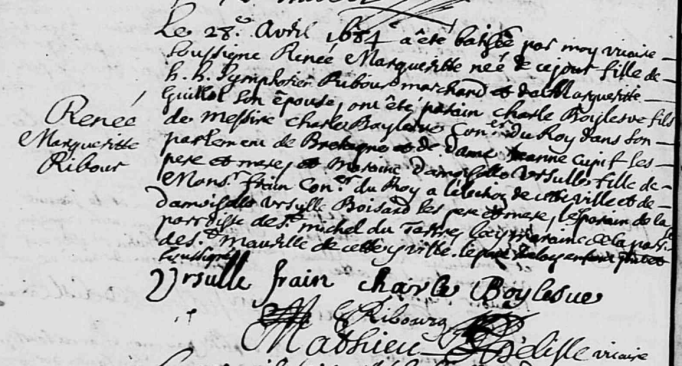 Le 28e. Avril 1684 a été batisée par moy vicaire
soussigné Renée Margueritte née de ce jour fille de
h. h. Symphorien Ribour marchand et de Margueritte
Guittot son epouse, ont été parain charle Boylesve fils
de Messire charle Boylesve Coner. du Roy dans son
parlement de Bretagne et de dame Jeanne Cupif ses
pere et mere, et Maraine damoiselle Ursulle fille de
Monsr. frain Coner. du Roy a l'election de cette ville et de
damoiselle Ursulle Boisard ses pere et mere, le parain de la
paroisse de St. michel du Tertre, la maraine de la paroisse
de St. Maurille de cette ville. le pere
soussignés
Renée
Margueritte
Ribour
Ursulle frain charle Boylesve
Ribourg
Mathieu Delisle vicaire